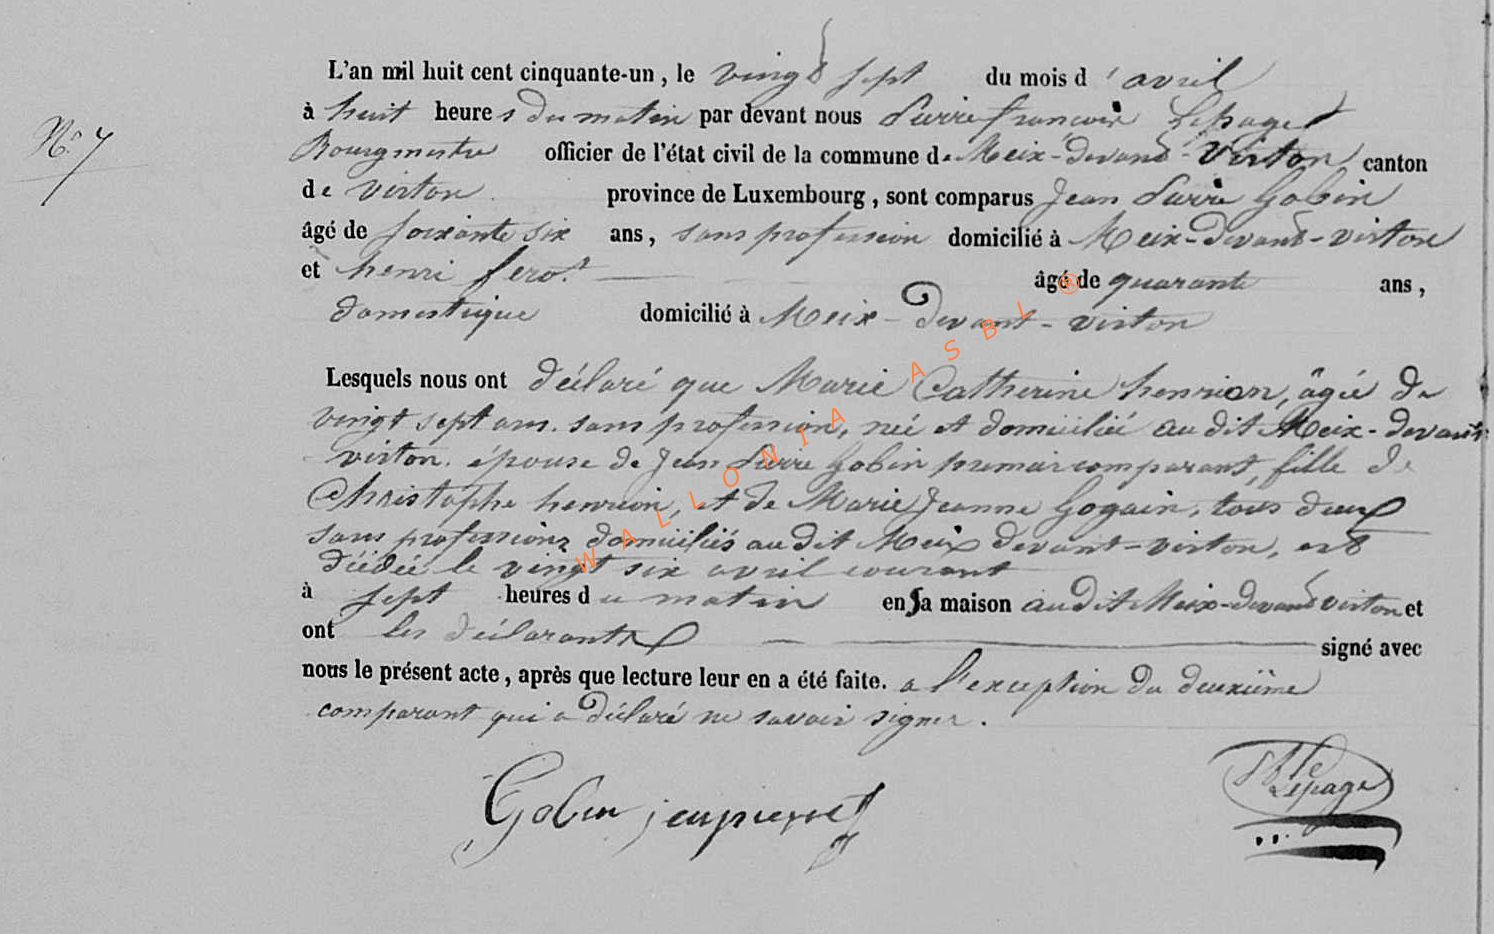 L'an mil huit cent cinquante-un, le vingt sept du mois d'avril
N.° 7
à huit heures du matin par devant nous Pierre francois Lepage
Bourgmestre officier de l'état civil de la commune de Meix-devant-Virton canton
de virton province de Luxembourg, sont comparus Jean Pierre Gobin
âgé de soixante six ans, sans profession domicilié à Meix-devant-virton
et henri âgé de quarante ans,
domestique domicilié à Meix-devant-virton
Lesquels nous ont déclaré que Marie Catherine henrion, âgée de
vingt sept ans. sans profession, née et domiciliée au dit Meix-devant
virton. épouse de Jean Pierre Gobin premier comparant, fille de
Christophe henrion, et de Marie Jeanne Gogain, tous deux
sans professions domiciliés au dit Meix devant-virton, est
décédée le vingt six avril courant
à sept heures du matin en sa maison au dit Meix-devant virton et
ont les déclarants signé avec
nous le présent acte, après que lecture leur en a été faite. a l'exception du deuxième
comparant qui a déclaré ne savoir signer.
Gobin jeanpierre
Lepage
WALLONIA ASBL ®